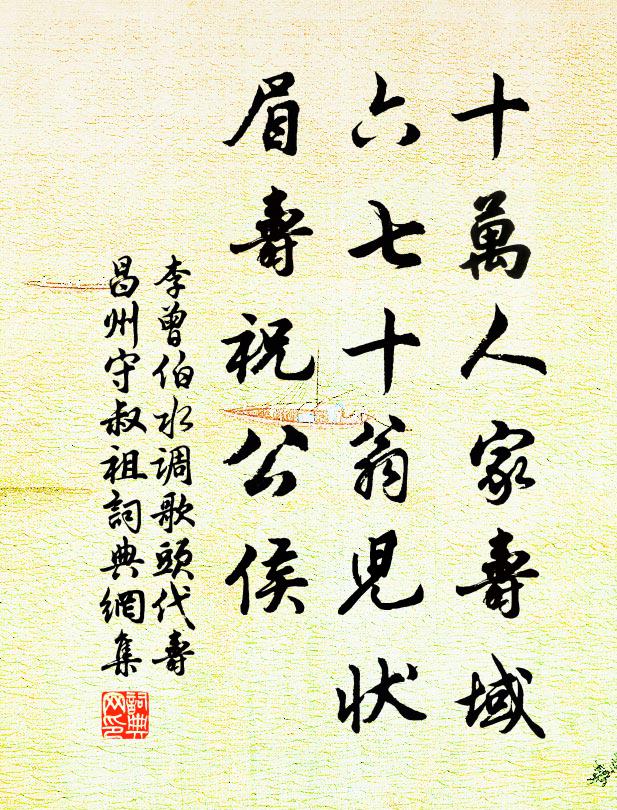 十萬人家壽域
六七十翁兒狀
眉壽祝公侯
李曾伯水调歌頭代壽
昌州守叔祖詞典網集
詞典网印